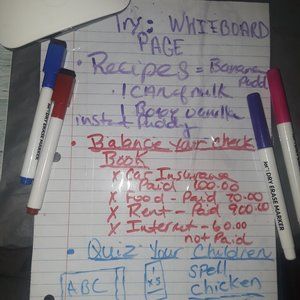 Try: WHITEBOARD
PAGE
• Recipes = Banana
Pudd
! 1 CAN of milk
1 Box vanilla
instant
• Balance your check
Book
X Car Insurance
Paid 100.00
X Food - Paid 70.00
X Rent - Paid 900.00
X Internet - 60.00
not Paid
• Quiz Your Children
ABC
1
x5
Spell
chicken
DRY ERASE MARKER